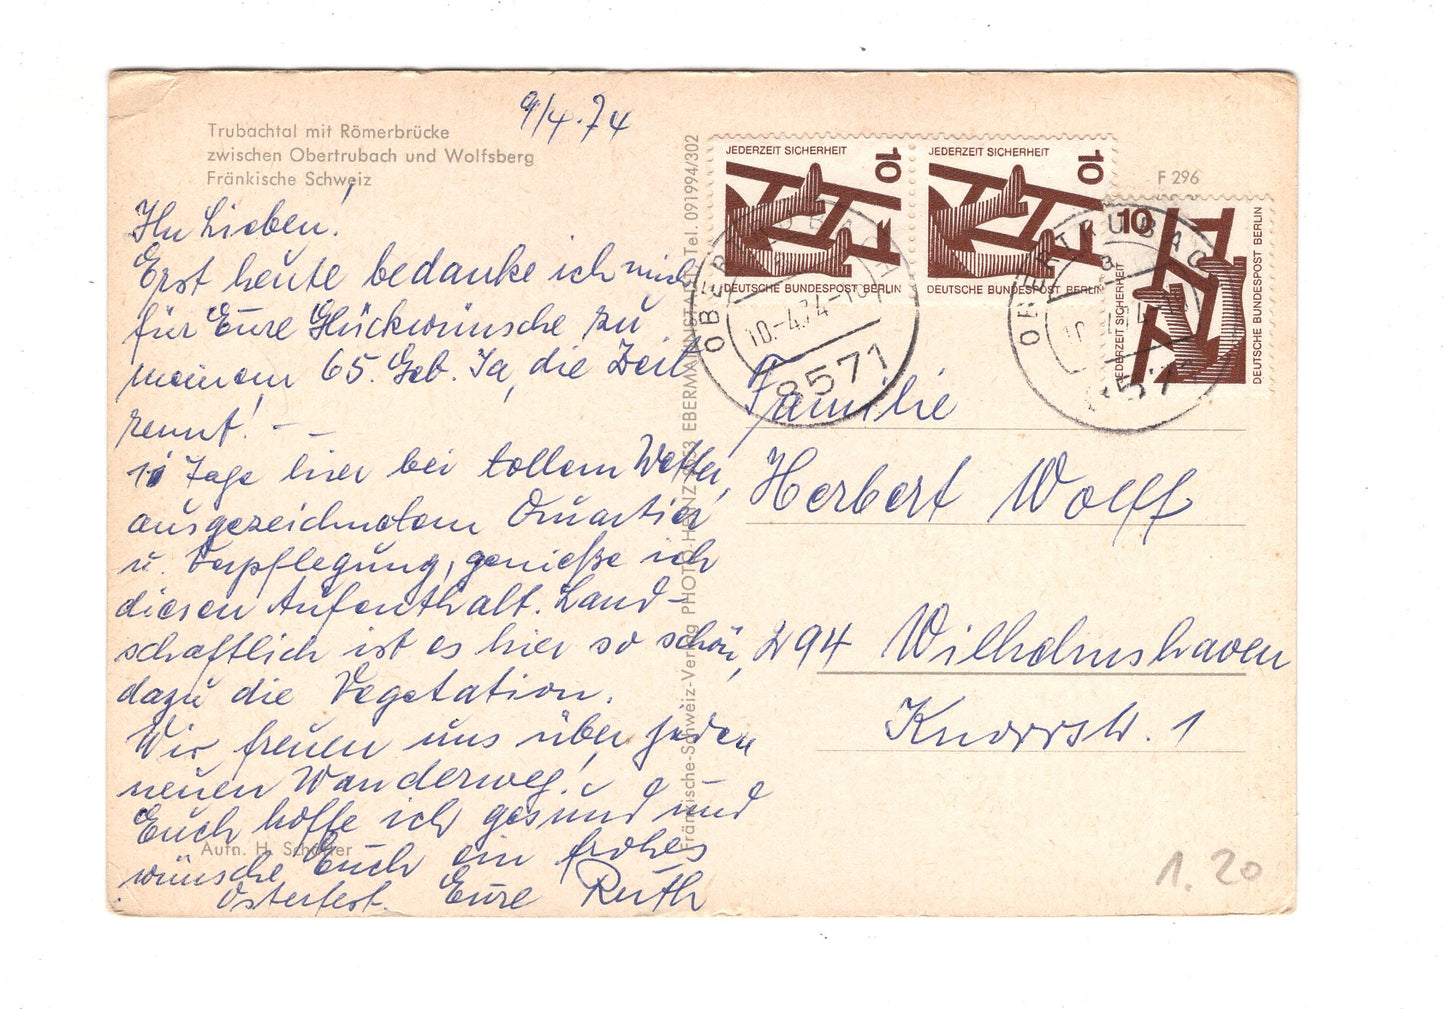 9/4.74
Trubachtal mit Römerbrücke
zwischen Obertrubach und Wolfsberg
Fränkische Schweiz
Ihr Lieben!
Erst heute bedanke ich mich
für Eure Glückwünsche zu
meinem 65. Geb. Ja, die Zeit
rennt! - -
Tage hier bei tollem Wetter,
ausgezeichnetem Quartier
u. Verpflegung, genieße ich
diesen Aufenthalt. Land-
schaftlich ist es hier so schön,
dazu die Vegetation.
Wir freuen uns über jeden
neuen Wanderweg!
Euch hoffe ich gesund und
wünsche Euch ein frohes
Osterfest. Eure Ruth
Aufn. H. Schäffer
Fränkische-Schweiz-Verlag PHOTO-HEINZ 8553 EBERMANNSTADT, Tel. 091994/302
JEDERZEIT SICHERHEIT
10
DEUTSCHE BUNDESPOST BERLIN
JEDERZEIT SICHERHEIT
10
DEUTSCHE BUNDESPOST BERLIN
F 296
10
JEDERZEIT SICHERHEIT
DEUTSCHE BUNDESPOST BERLIN
OBERTRUBACH
10.-4.74-
8571
OBERTRUBACH
857
Familie
Herbert Wolff
294 Wilhelmshaven
Knorrstr. 1
1.20